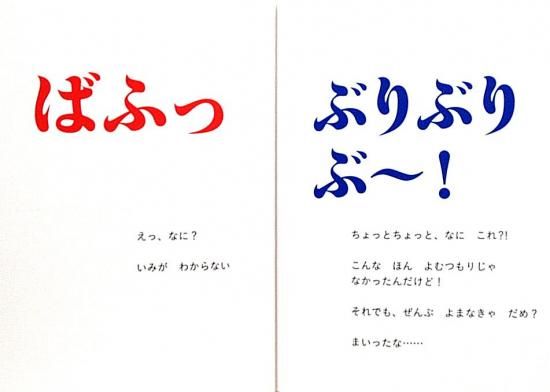 ばふっ
えっ、なに？
いみが　わからない
ぶりぶり
ぶ〜！
ちょっとちょっと、なに　これ?!
こんな　ほん　よむつもりじゃ
なかったんだけど！
それでも、ぜんぶ　よまなきゃ　だめ？
まいったな……